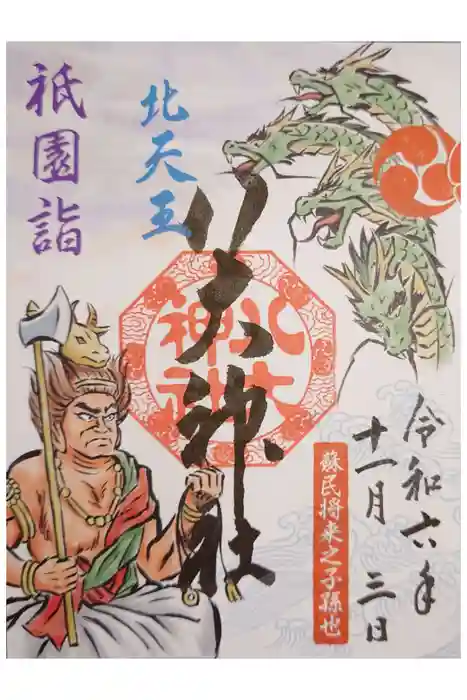 令和六年
十一月 三日
蘇民将来之子孫也
八大神社
八大
神社
北天王
祇園詣